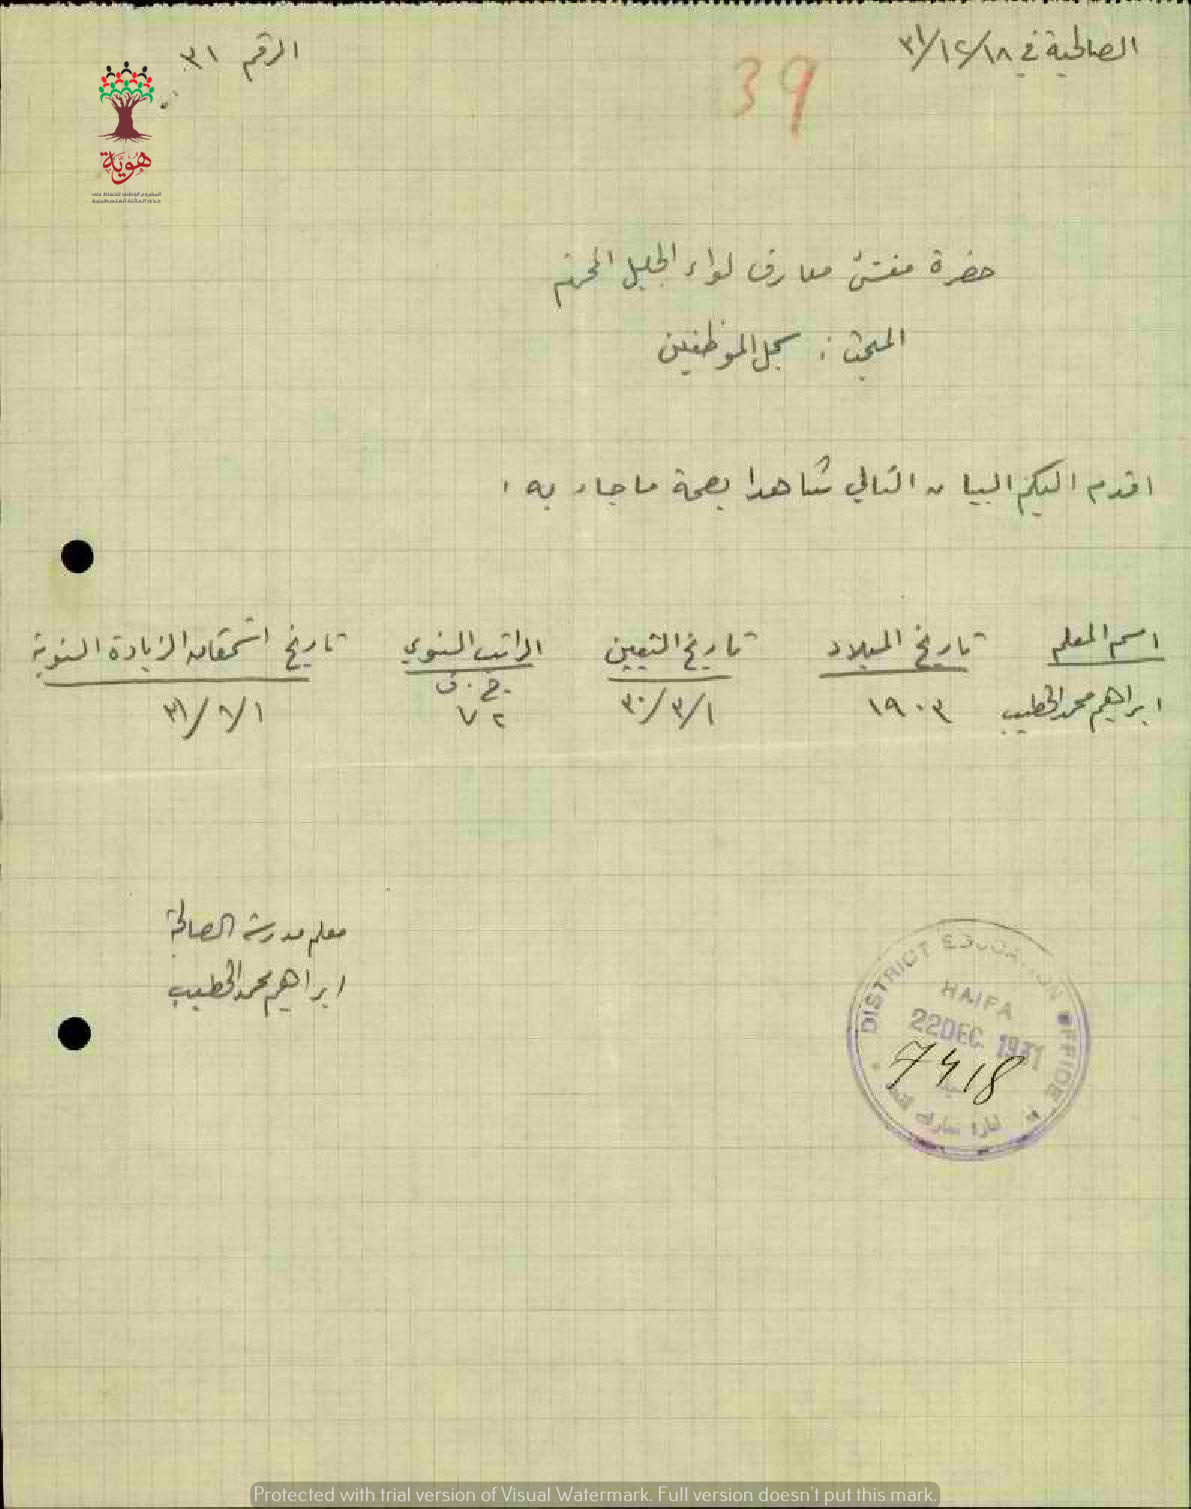 الصالحية في ٣١/١٢/١٨
الرقم ٣١
39
هُوِيَّة
المشروع الوطني للحفاظ على
جذور العائلة الفلسطينية
حضرة مفتش معارف لواء الجليل المحترم
المبحث : سجل الموظفين
اقدم اليكم البيان التالي شاهدا بصحة ما جاء به :
اسم المعلم تاريخ الميلاد تاريخ التعيين الراتب السنوي تاريخ استحقاق الزيادة السنوية
ج . ف
ابراهيم محمد الخطيب ١٩٠٣ ٣٠/٣/١ ٧٢ ٣١/٨/١
معلم مدرسة الصالحية
ابراهيم محمد الخطيب
DISTRICT EDUCATION OFFICE
HAIFA
22 DEC. 1931
7418
ادارة معارف
Protected with trial version of Visual Watermark. Full version doesn't put this mark.